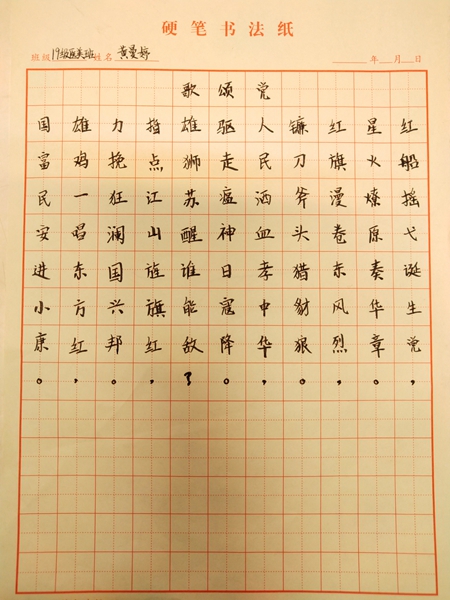 硬笔书法纸
班级 19级医美班 姓名 黄曼婷 年 月 日
歌颂党
红船摇弋诞生党，
星火燎原奏华章。
红旗漫卷东风烈，
镰刀斧头猎豺狼。
人民洒血孝中华，
驱走瘟神日寇降。
雄狮苏醒谁能敌？
指点江山旌旗红，
力挽狂澜国兴邦。
雄鸡一唱东方红，
国富民安进小康。